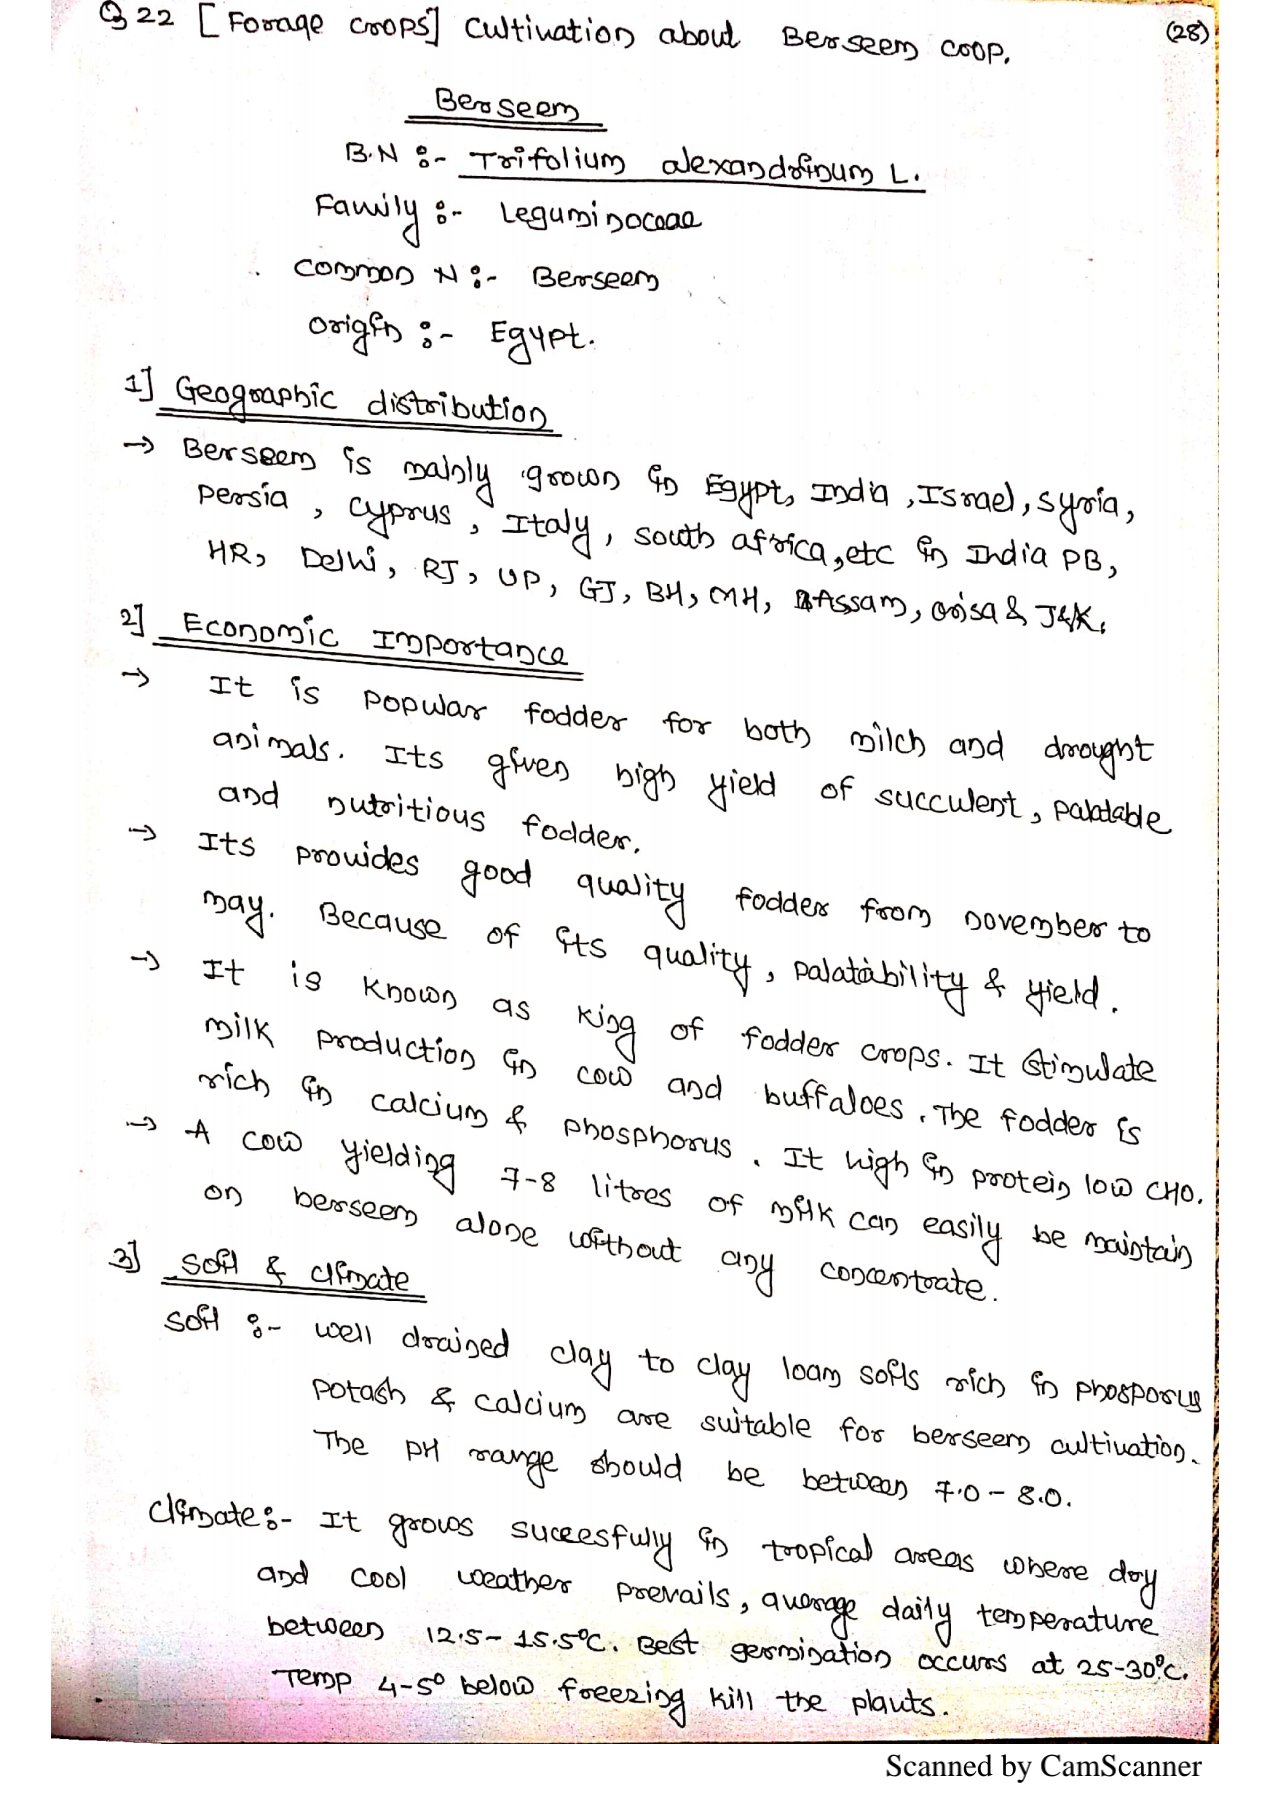 Q 22 [Forage crops] Cultivation about Berseem crop.
(28)
Berseem
B.N :- Trifolium alexandrinum L.
Family :- Leguminoceae
Common N :- Berseem
Origin :- Egypt.
1] Geographic distribution
→ Berseem is mainly grown in Egypt, India, Israel, Syria,
Persia, Cyprus, Italy, South africa, etc in India PB,
HR, Delhi, RJ, UP, GJ, BH, MH, Assam, orisa & J&K.
2] Economic Importance
→ It is popular fodder for both milch and drought
animals. Its given high yield of succulent, palatable
and nutritious fodder.
→ Its provides good quality fodder from november to
may. Because of its quality, palatability & yield.
→ It is known as king of fodder crops. It stimulate
milk production in cow and buffaloes. The fodder is
rich in calcium & phosphorus. It high in protein low CHO.
→ A cow yielding 7-8 litres of milk can easily be maintain
on berseem alone without any concentrate.
3] Soil & climate
Soil :- well drained clay to clay loam soils rich in phosporus
potash & calcium are suitable for berseem cultivation.
The PH range should be between 7.0 - 8.0.
Climate :- It grows succesfully in tropical areas where dry
and cool weather prevails, average daily temperature
between 12.5 - 15.5°C. Best germination occurs at 25-30°C.
Temp 4-5° below freezing kill the plants.
Scanned by CamScanner